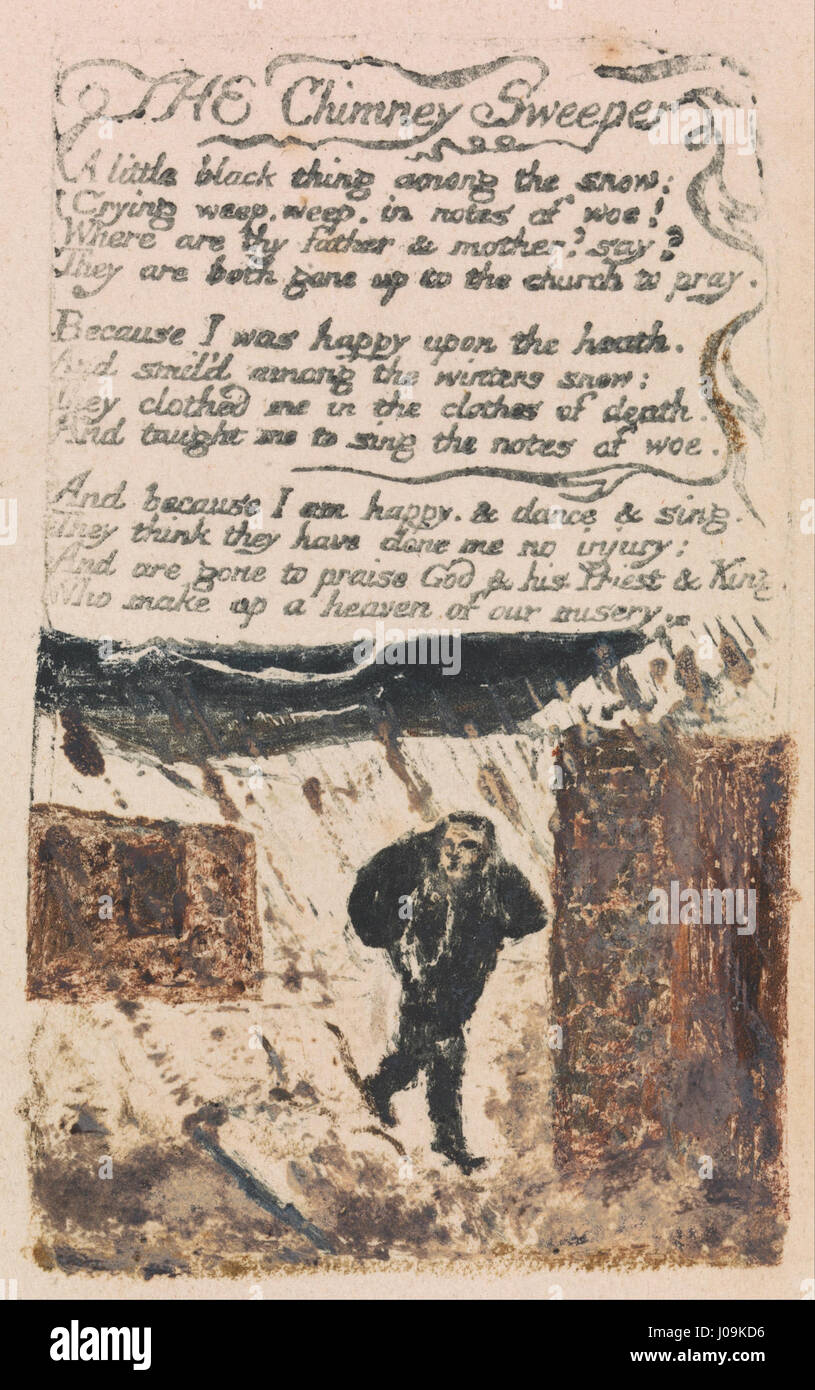 THE Chimney Sweeper
A little black thing among the snow:
Crying weep, weep, in notes of woe!
Where are thy father & mother? say?
They are both gone up to the church to pray.
Because I was happy upon the heath.
And smil'd among the winters snow:
They clothed me in the clothes of death.
And taught me to sing the notes of woe.
And because I am happy. & dance & sing.
They think they have done me no injury:
And are gone to praise God & his Priest & King
Who make up a heaven of our misery.
alamy
alamy
Image ID: J09KD6
www.alamy.com